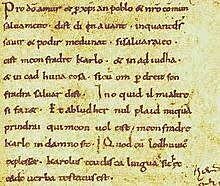 Pro dō amur & p xp̄ian poblo & nr̄o cōmun
saluament. dist di en auant. inquantdš
sauir & podir medunat. sisaluaraieo.
cist meon fradre karlo. & in adiudha
& in cad huna cosa. sicū om p dreit son
fradra saluar dist. Ino quid il mialtre
si faz&. Et abludher nul plaid nūquā
prindrai qui meon uol cist. meonfradre
karle in damno sit. Quod cū lodhuuic
explesset. karolus teudisca lingua sic
eadē uerba testatus est.